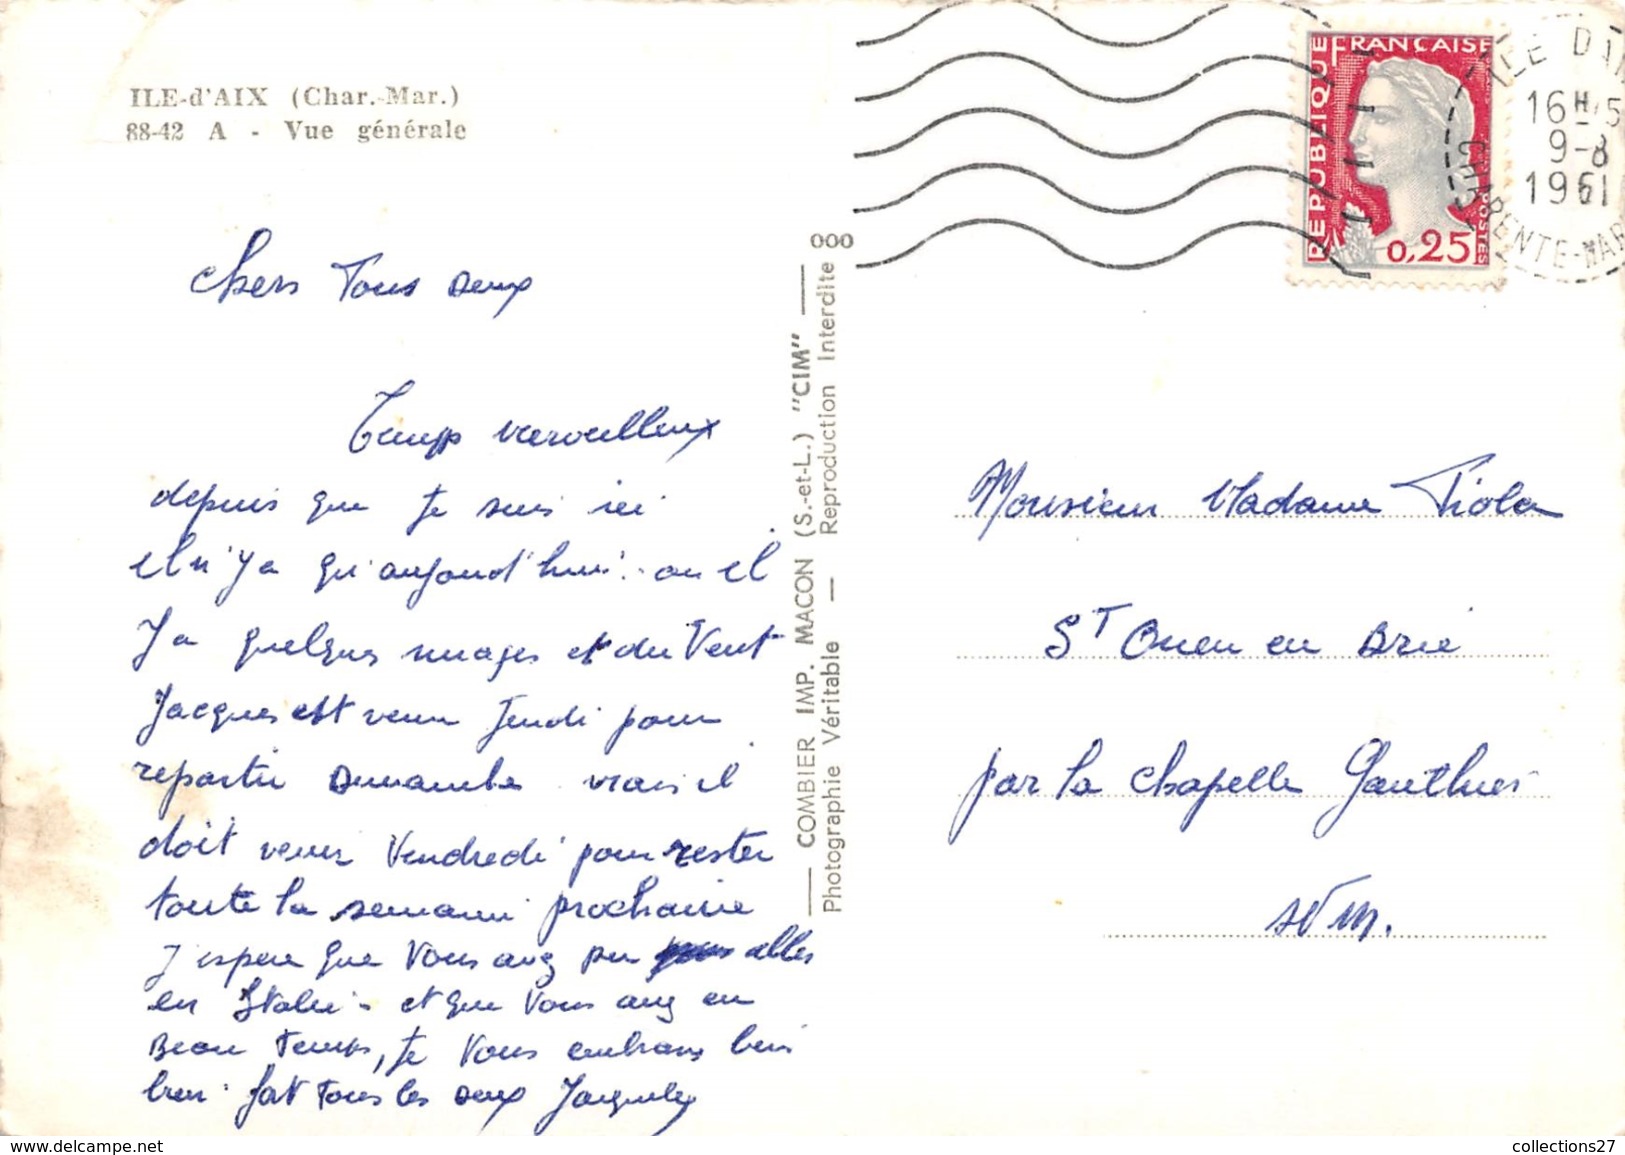 ILE-d'AIX (Char.-Mar.)
88-42 A - Vue générale
Chers Tous deux
Temps merveilleux
depuis que je suis ici
il n'y a qu'aujourd'hui ou il
y a quelques nuages et du vent
Jacques est venu Jeudi pour
repartir dimanche mais il
doit venir Vendredi pour rester
toute la semaine prochaine
J'espere que Vous avez pu aller
en Italie - et que Vous avez eu
Beau Temps, je Vous embrasse bien
bien fort Tous les deux Jacqueline
COMBIER IMP. MACON (S.-et-L.) "CIM"
Photographie Véritable — Reproduction Interdite
000
REPUBLIQUE FRANÇAISE
POSTES
0,25
ILE D'AIX
16H15
9-8
1961
CHARENTE-MAR
Monsieur Madame Fiola
ST Ouen en Brie
par la Chapelle Gauthier
S et M.
www.delcampe.net
collections27